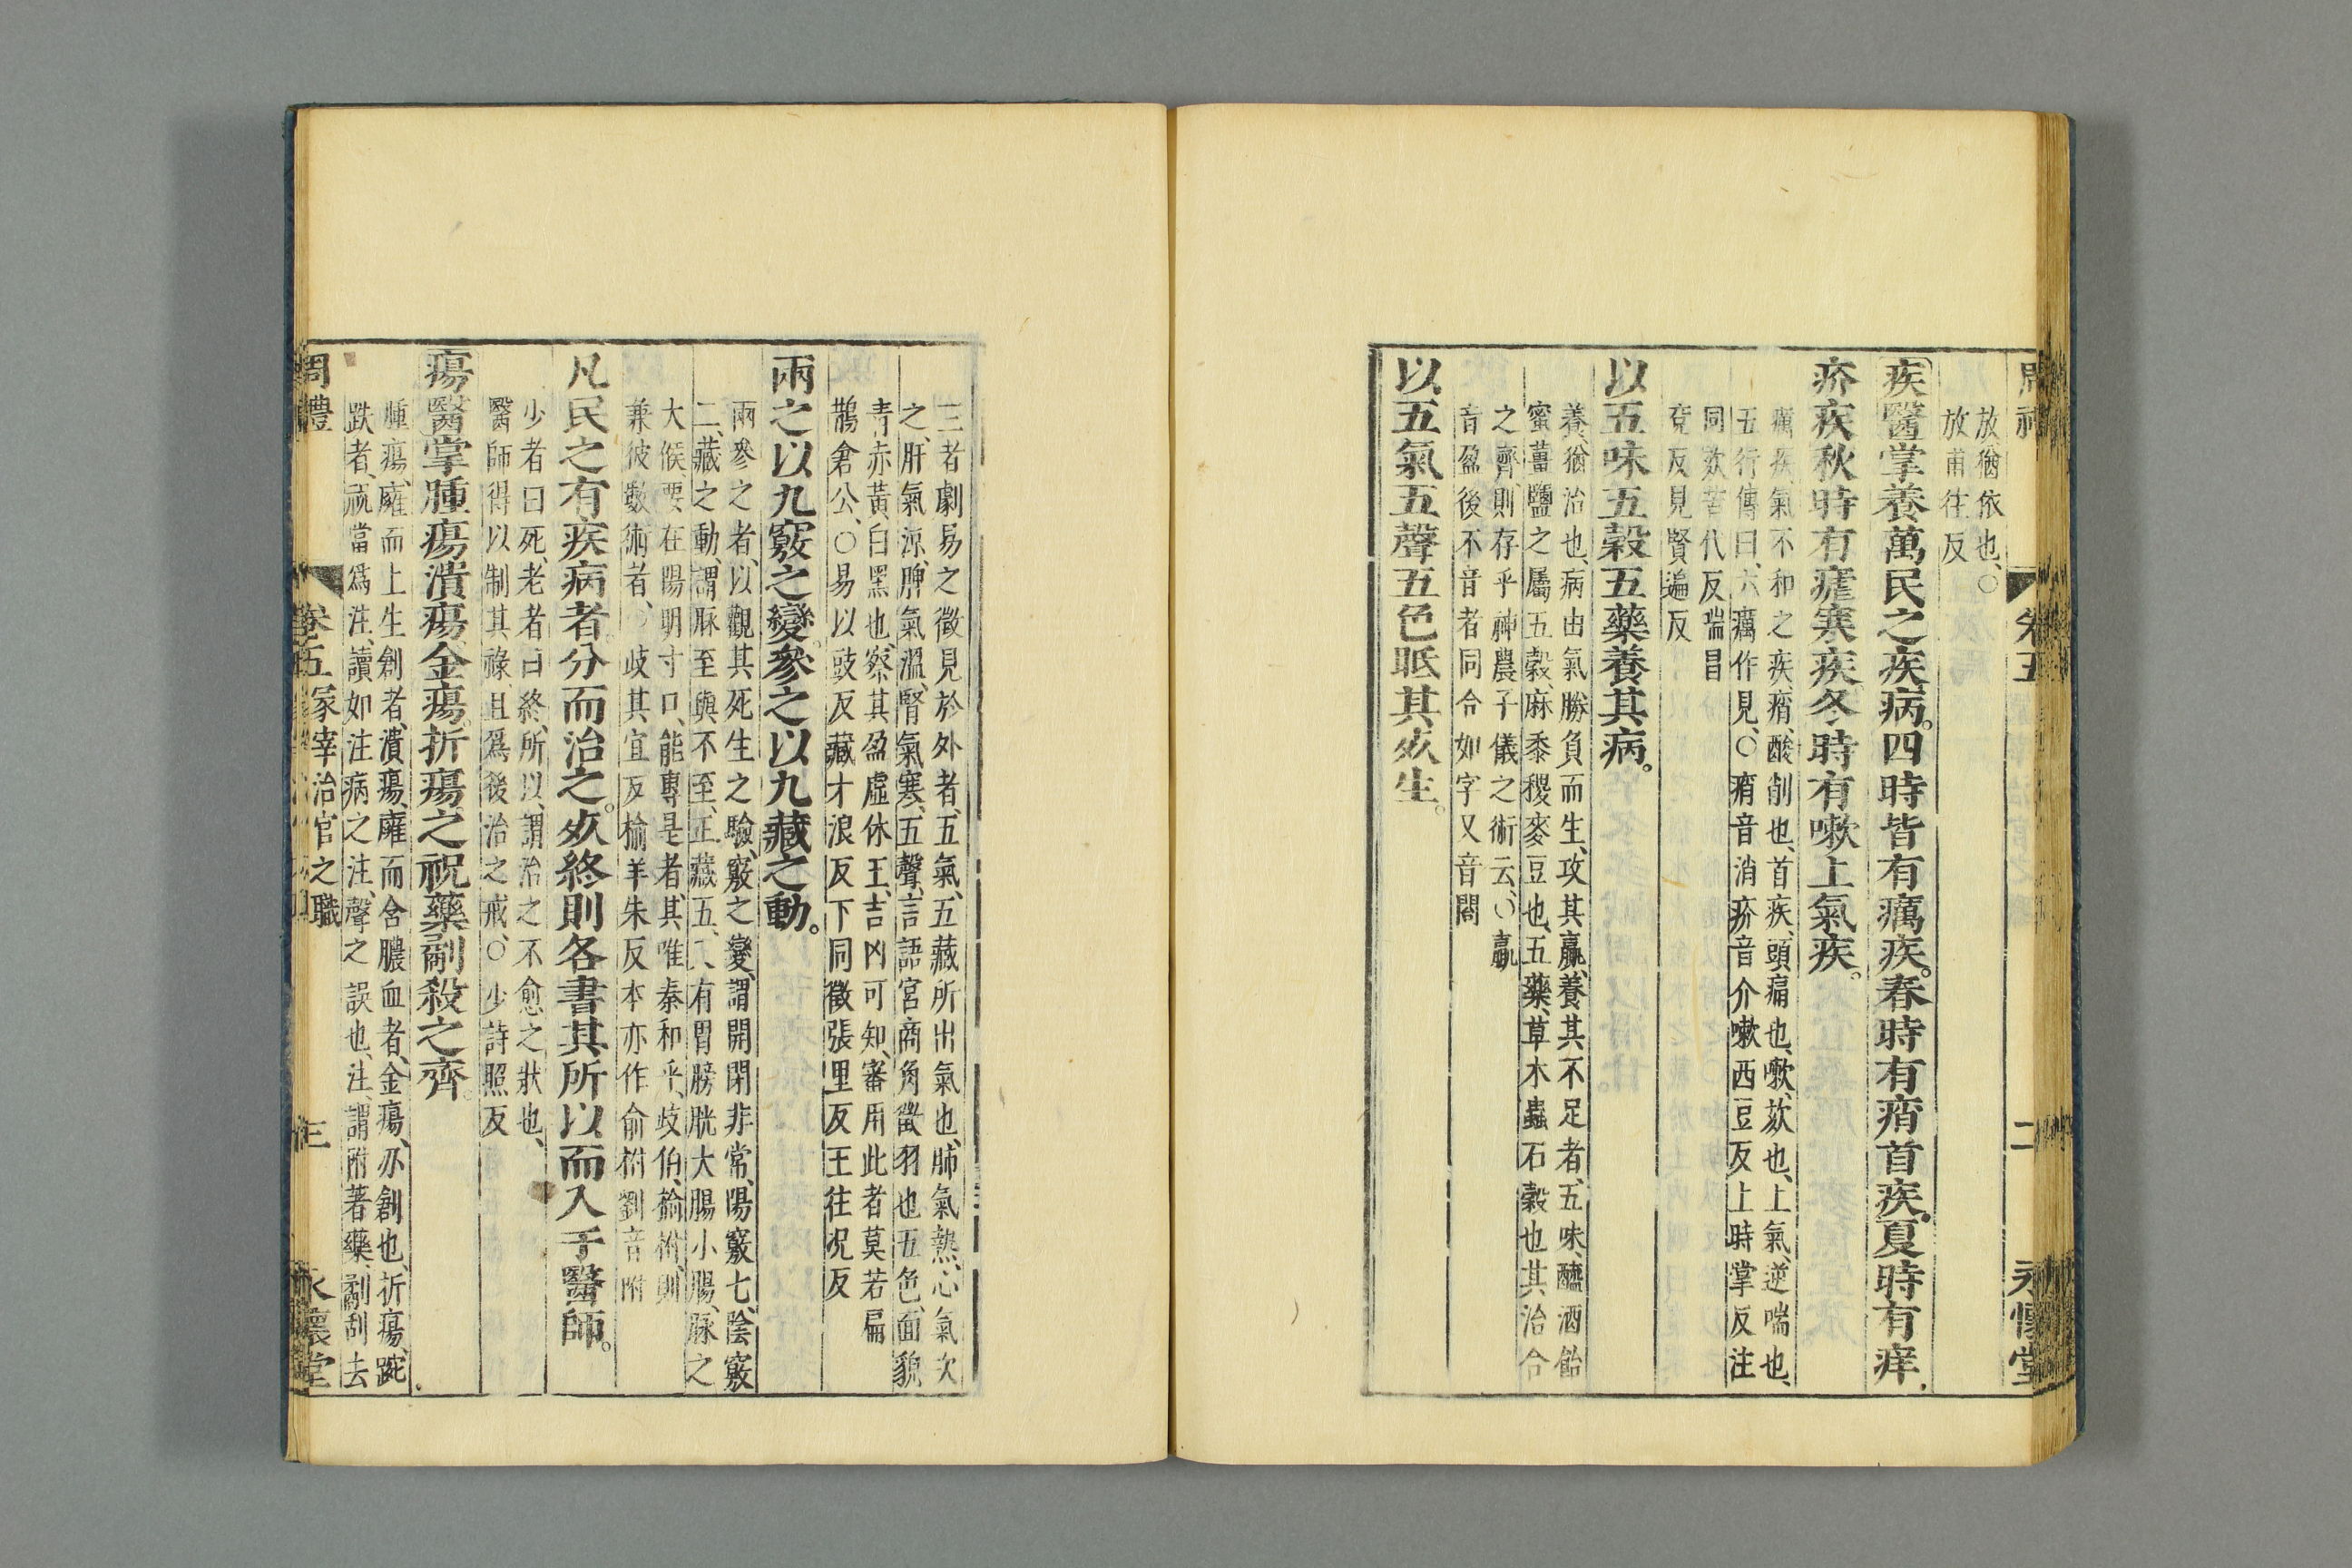 周禮 卷五 二 永懷堂
放猶依也、○
放甫往反
疾醫掌養萬民之疾病。四時皆有癘疾。春時有痟首疾。夏時有痒
疥疾秋時有瘧寒疾冬時有嗽上氣疾。
癘疾、氣不和之疾、痟、酸削也、首疾、頭痛也、嗽、欬也、上氣、逆喘也、
五行傳曰、六癘作見、○痟音消疥音介嗽西豆反上時掌反注
同欬苦代反喘昌
兗反見賢遍反
以五味五穀五藥養其病。
養、猶治也、病由氣勝負而生、攻其羸、養其不足者、五味、醯酒飴
蜜薑鹽之屬五穀、麻黍稷麥豆也、五藥、草木蟲石穀也其治合
之齊、則存乎神農子儀之術云、○羸
音盈後不音者同合如字又音閤
以五氣五聲五色眡其㱙生。
三者劇易之徵見於外者、五氣、五藏所出氣也、肺氣熱、心氣次
之、肝氣涼、脾氣溫、腎氣寒、五聲、言語宮商角徵羽也五色、面貌
青赤黃白黑也、察其盈虛休王、吉凶可知、審用此者莫若扁
鵲倉公、○易以豉反藏才浪反下同徵張里反王往況反
兩之以九竅之變。參之以九藏之動。
兩參之者、以觀其死生之驗、竅之變、謂開閉非常、陽竅七、陰竅
二、藏之動、謂脉至與不至、正藏五、又有胃膀胱大腸小腸、脉之
大候要在陽明寸口、能專是者、其唯秦和乎、歧伯、楡柎、則
兼彼數術者、○歧其宜反楡羊朱反本亦作俞柎劉音附
凡民之有疾病者分而治之。㱙終則各書其所以而入于醫師。
少者曰死、老者曰終、所以、謂治之不愈之狀也、
醫師得以制其祿、且爲後治之戒、○少詩照反
瘍醫掌腫瘍潰瘍、金瘍、折瘍、之祝藥劀殺之齊。
腫瘍、癰而上生創者、潰瘍、癰而含膿血者、金瘍、刃創也、折瘍、踠
跌者、祝當爲注、讀如注病之注、聲之誤也、注、謂附著藥、劀刮去
周禮 卷五 冢宰治官之職 三 永懷堂